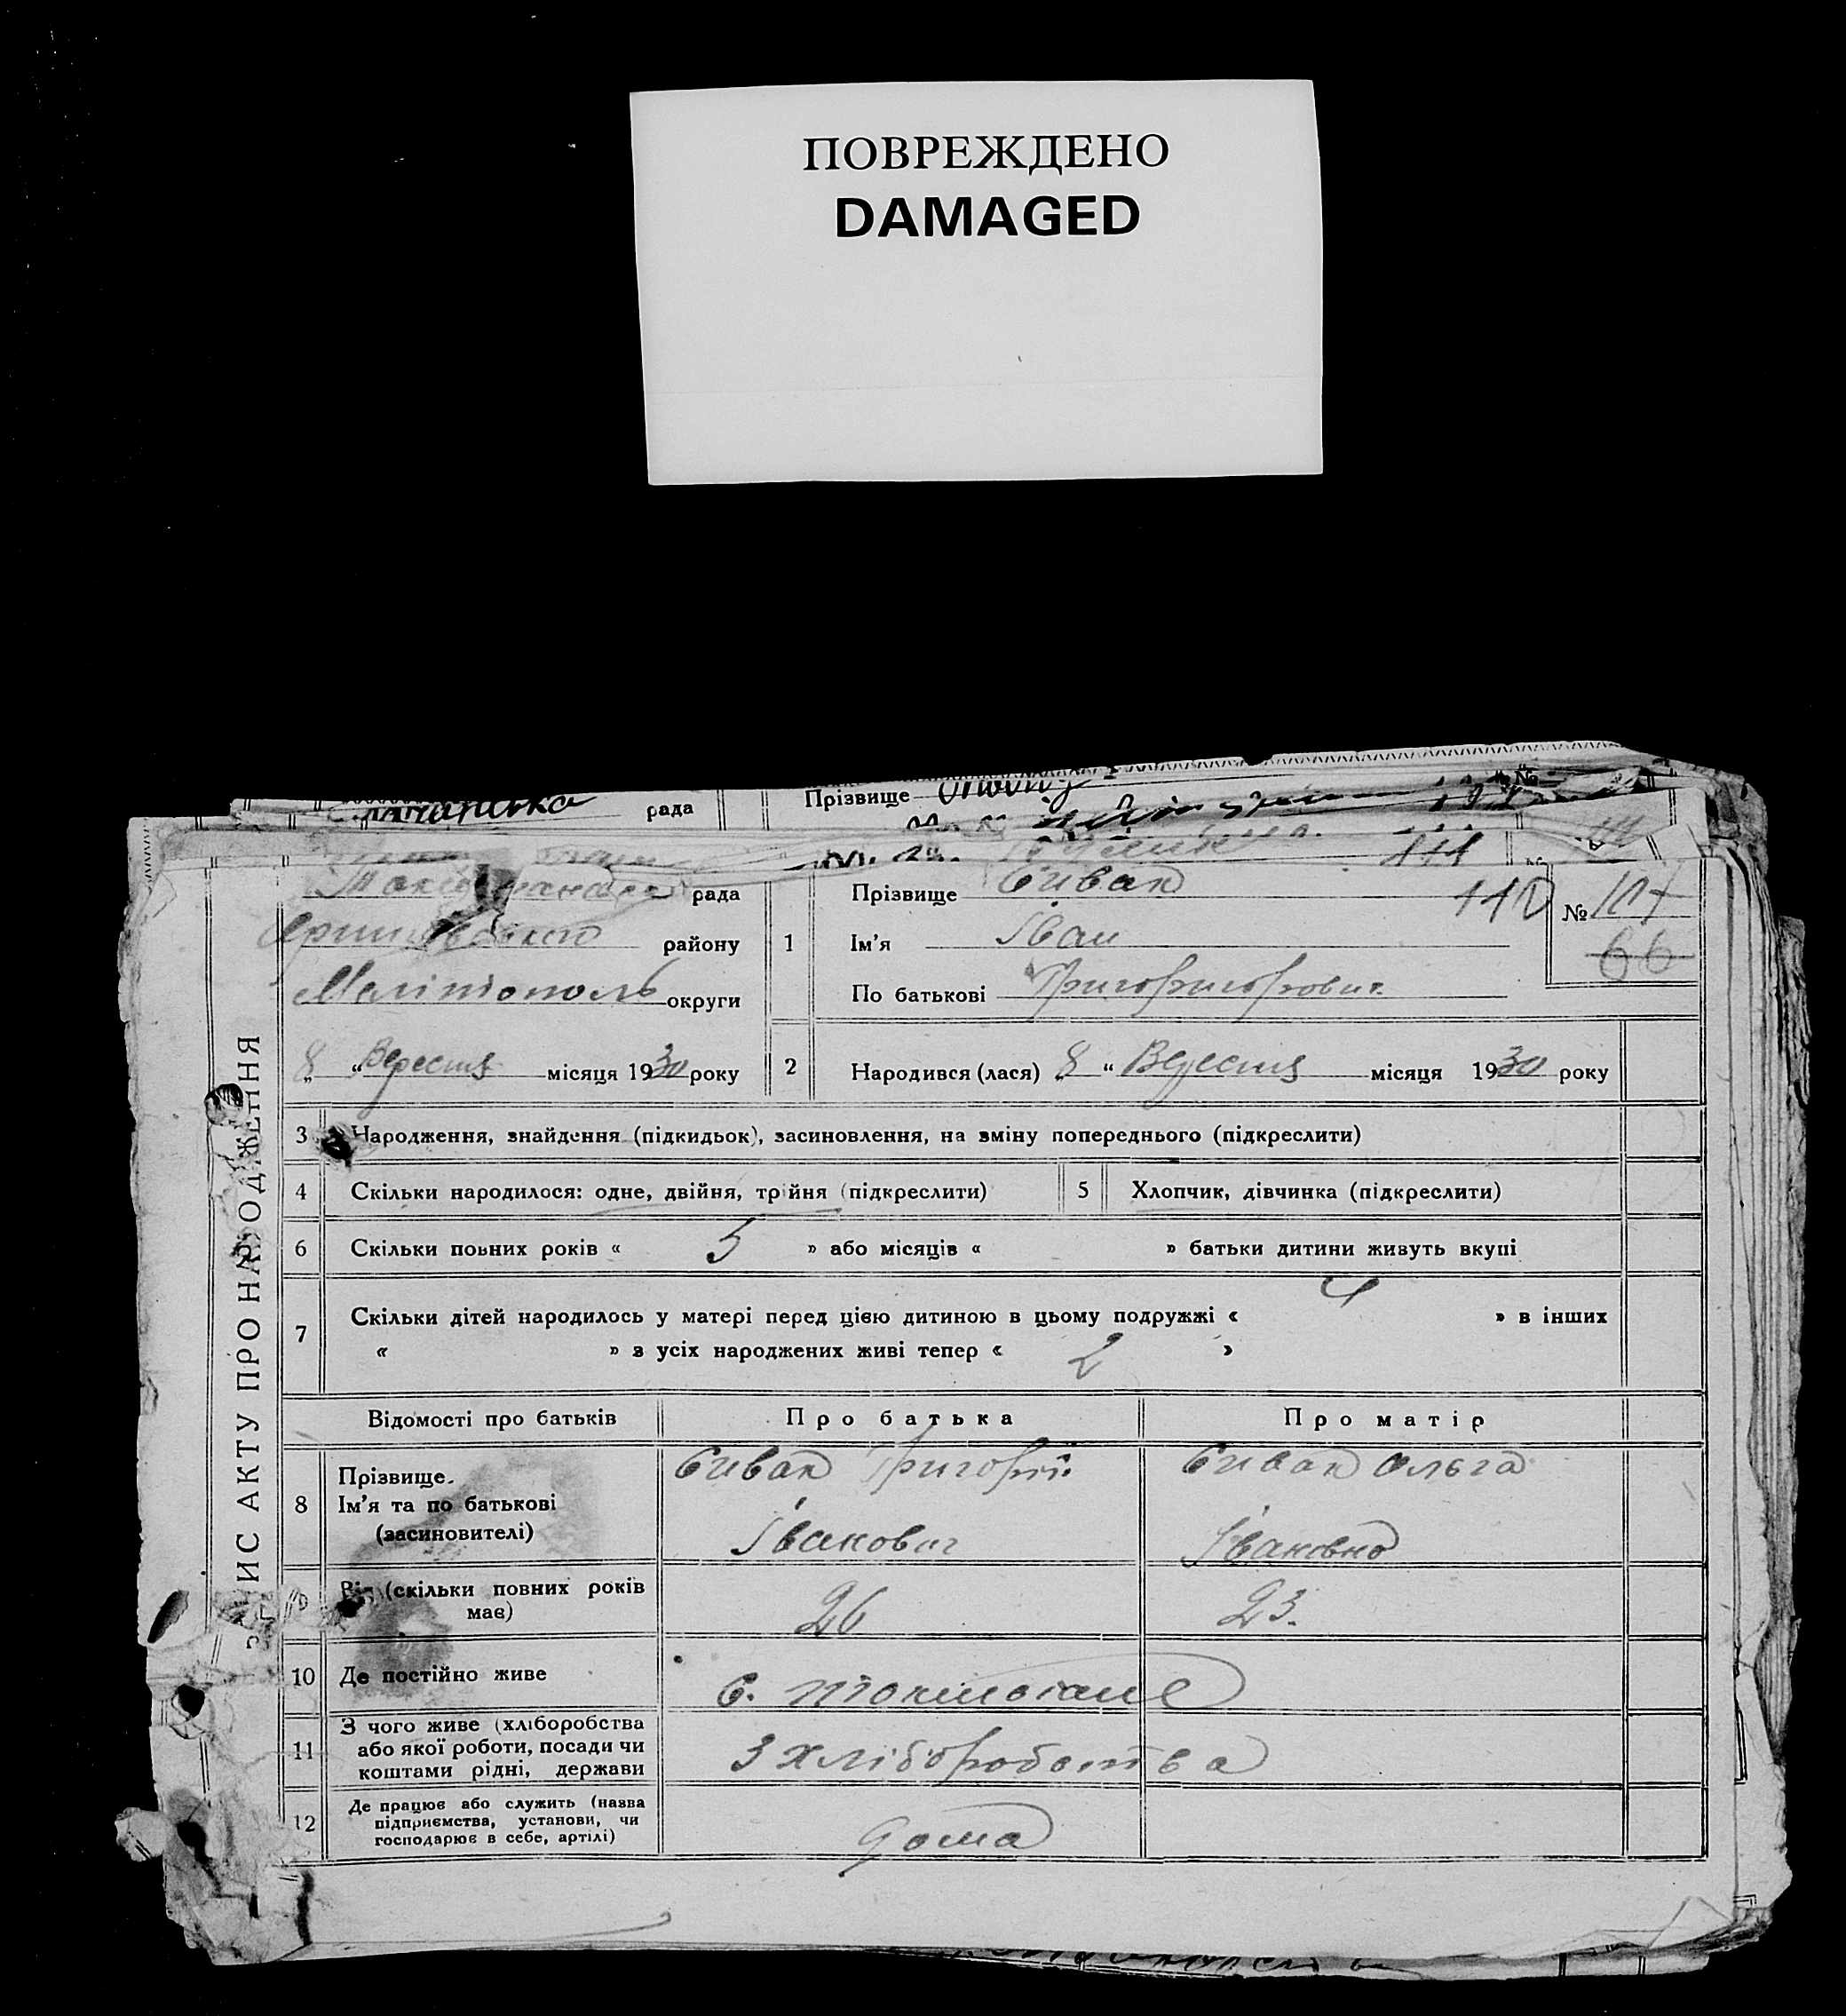 ПОВРЕЖДЕНО
DAMAGED
рада
Прізвище
№
рада
району
Мелітополь округи
„8“ Вересня місяця 1930 року
ЗАПИС АКТУ ПРО НАРОДЖЕННЯ
1
Прізвище Сивак
110
№ 107
66
Ім'я Іван
По батькові Григоригорович
2
Народився (лася) „8“ Вересня місяця 1930 року
3 Народження, знайдення (підкидьок), засиновлення, на зміну попереднього (підкреслити)
4 Скільки народилося: одне, двійня, трійня (підкреслити)
5 Хлопчик, дівчинка (підкреслити)
6 Скільки повних років « 5 » або місяців « » батьки дитини живуть вкупі
7 Скільки дітей народилось у матері перед цією дитиною в цьому подружжі « 4 » в інших
« » з усіх народжених живі тепер « 2 »
Відомості про батьків Про батька Про матір
8 Прізвище.
Ім'я та по батькові
(засиновителі)
Сивак Григорій
Іванович
Сивак Ольга
Івановна
9 Вік (скільки повних років
має)
26
23.
10 Де постійно живе
с.
11 З чого живе (хліборобства
або якої роботи, посади чи
коштами рідні, держави
З хліборобства
12 Де працює або служить (назва
підприємства, установи, чи
господарює в себе, артілі)
дома